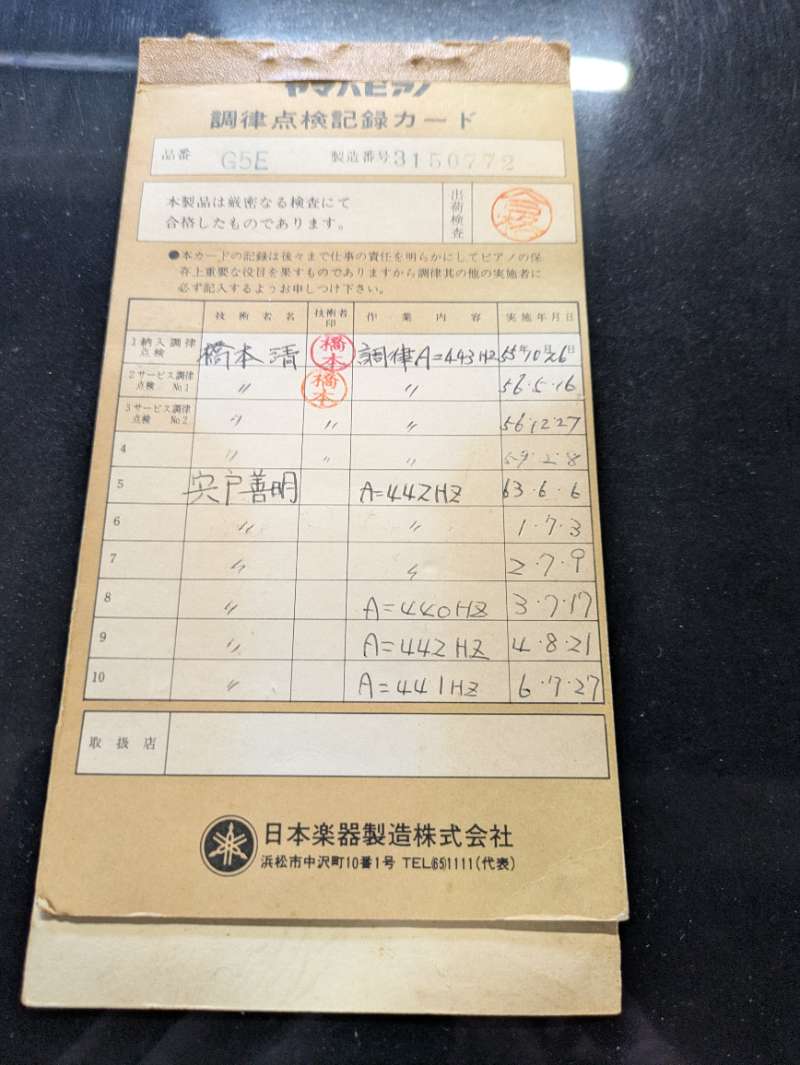 ヤマハピアノ
調律点検記録カード
品番 G5E 製造番号 3150772
本製品は厳密なる検査にて
合格したものであります。
出荷検査
●本カードの記録は後々まで仕事の責任を明らかにしてピアノの保
存上重要な役目を果すものでありますから調律其の他の実施者に
必ず記入するようお申しつけ下さい。
技術者名 技術者印 作業内容 実施年月日
1 納入調律点検 橋本清 橋本 調律A=443HZ 55年10月26日
2 サービス調律点検 No1 〃 橋本 〃 56.5.16
3 サービス調律点検 No2 〃 〃 〃 56.12.27
4 〃 〃 〃 59.2.8
5 宍戸善明 A=442HZ 63.6.6
6 〃 〃 1.7.3
7 〃 〃 2.7.9
8 〃 A=440HZ 3.7.17
9 〃 A=442HZ 4.8.21
10 〃 A=441HZ 6.7.27
取扱店
日本楽器製造株式会社
浜松市中沢町10番1号 TEL(65)1111(代表)